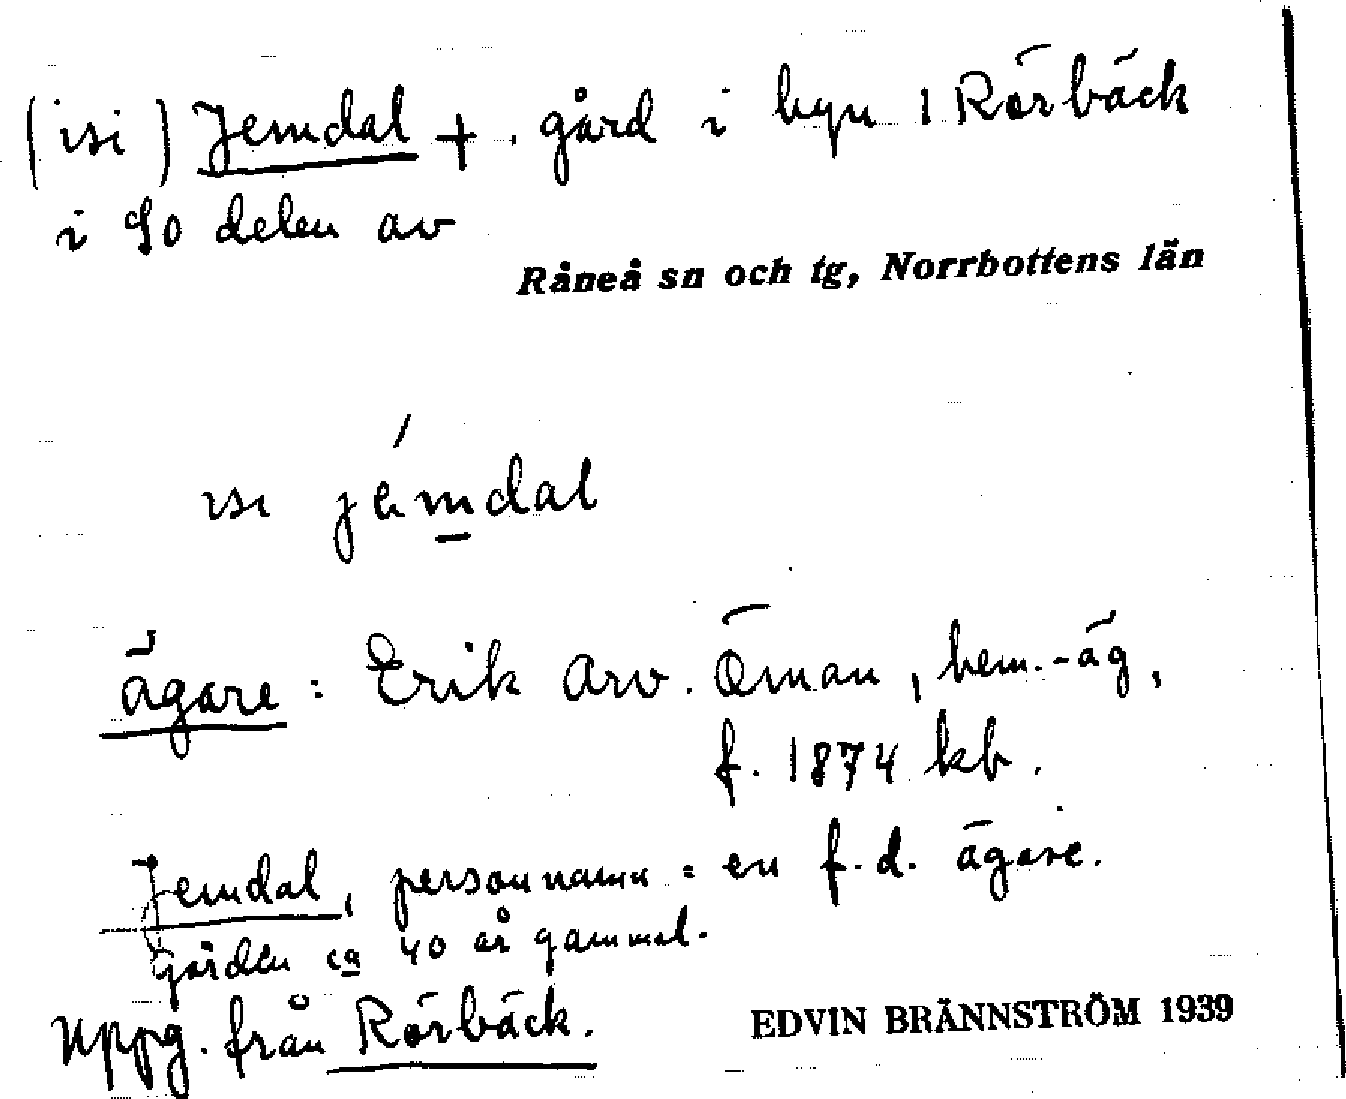 (isi) Jemdal +. gård i byn 1 Rörbäck
i SO delen av
Råneå sn och tg, Norrbottens län
ısı jémdal
ägare: Erik Arv. Öman, hem.-äg,
f. 1874 kb.
Jemdal, personnamn = en f.d. ägare.
Gården ca 40 år gammal.
Uppg. från Rörbäck.
EDVIN BRÄNNSTRÖM 1939